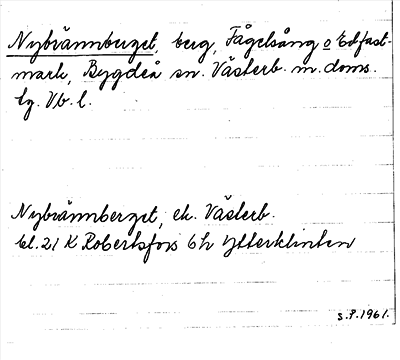 Nybrännberget, berg, Fågelsång o Edfast-
mark, Bygdeå sn. Västerb. m. doms.
lg. Vb. l.
Nybrännberget, ek. Västerb.
bl. 21 K Robertsfors 6 h Ytterklinten
S.P. 1961.